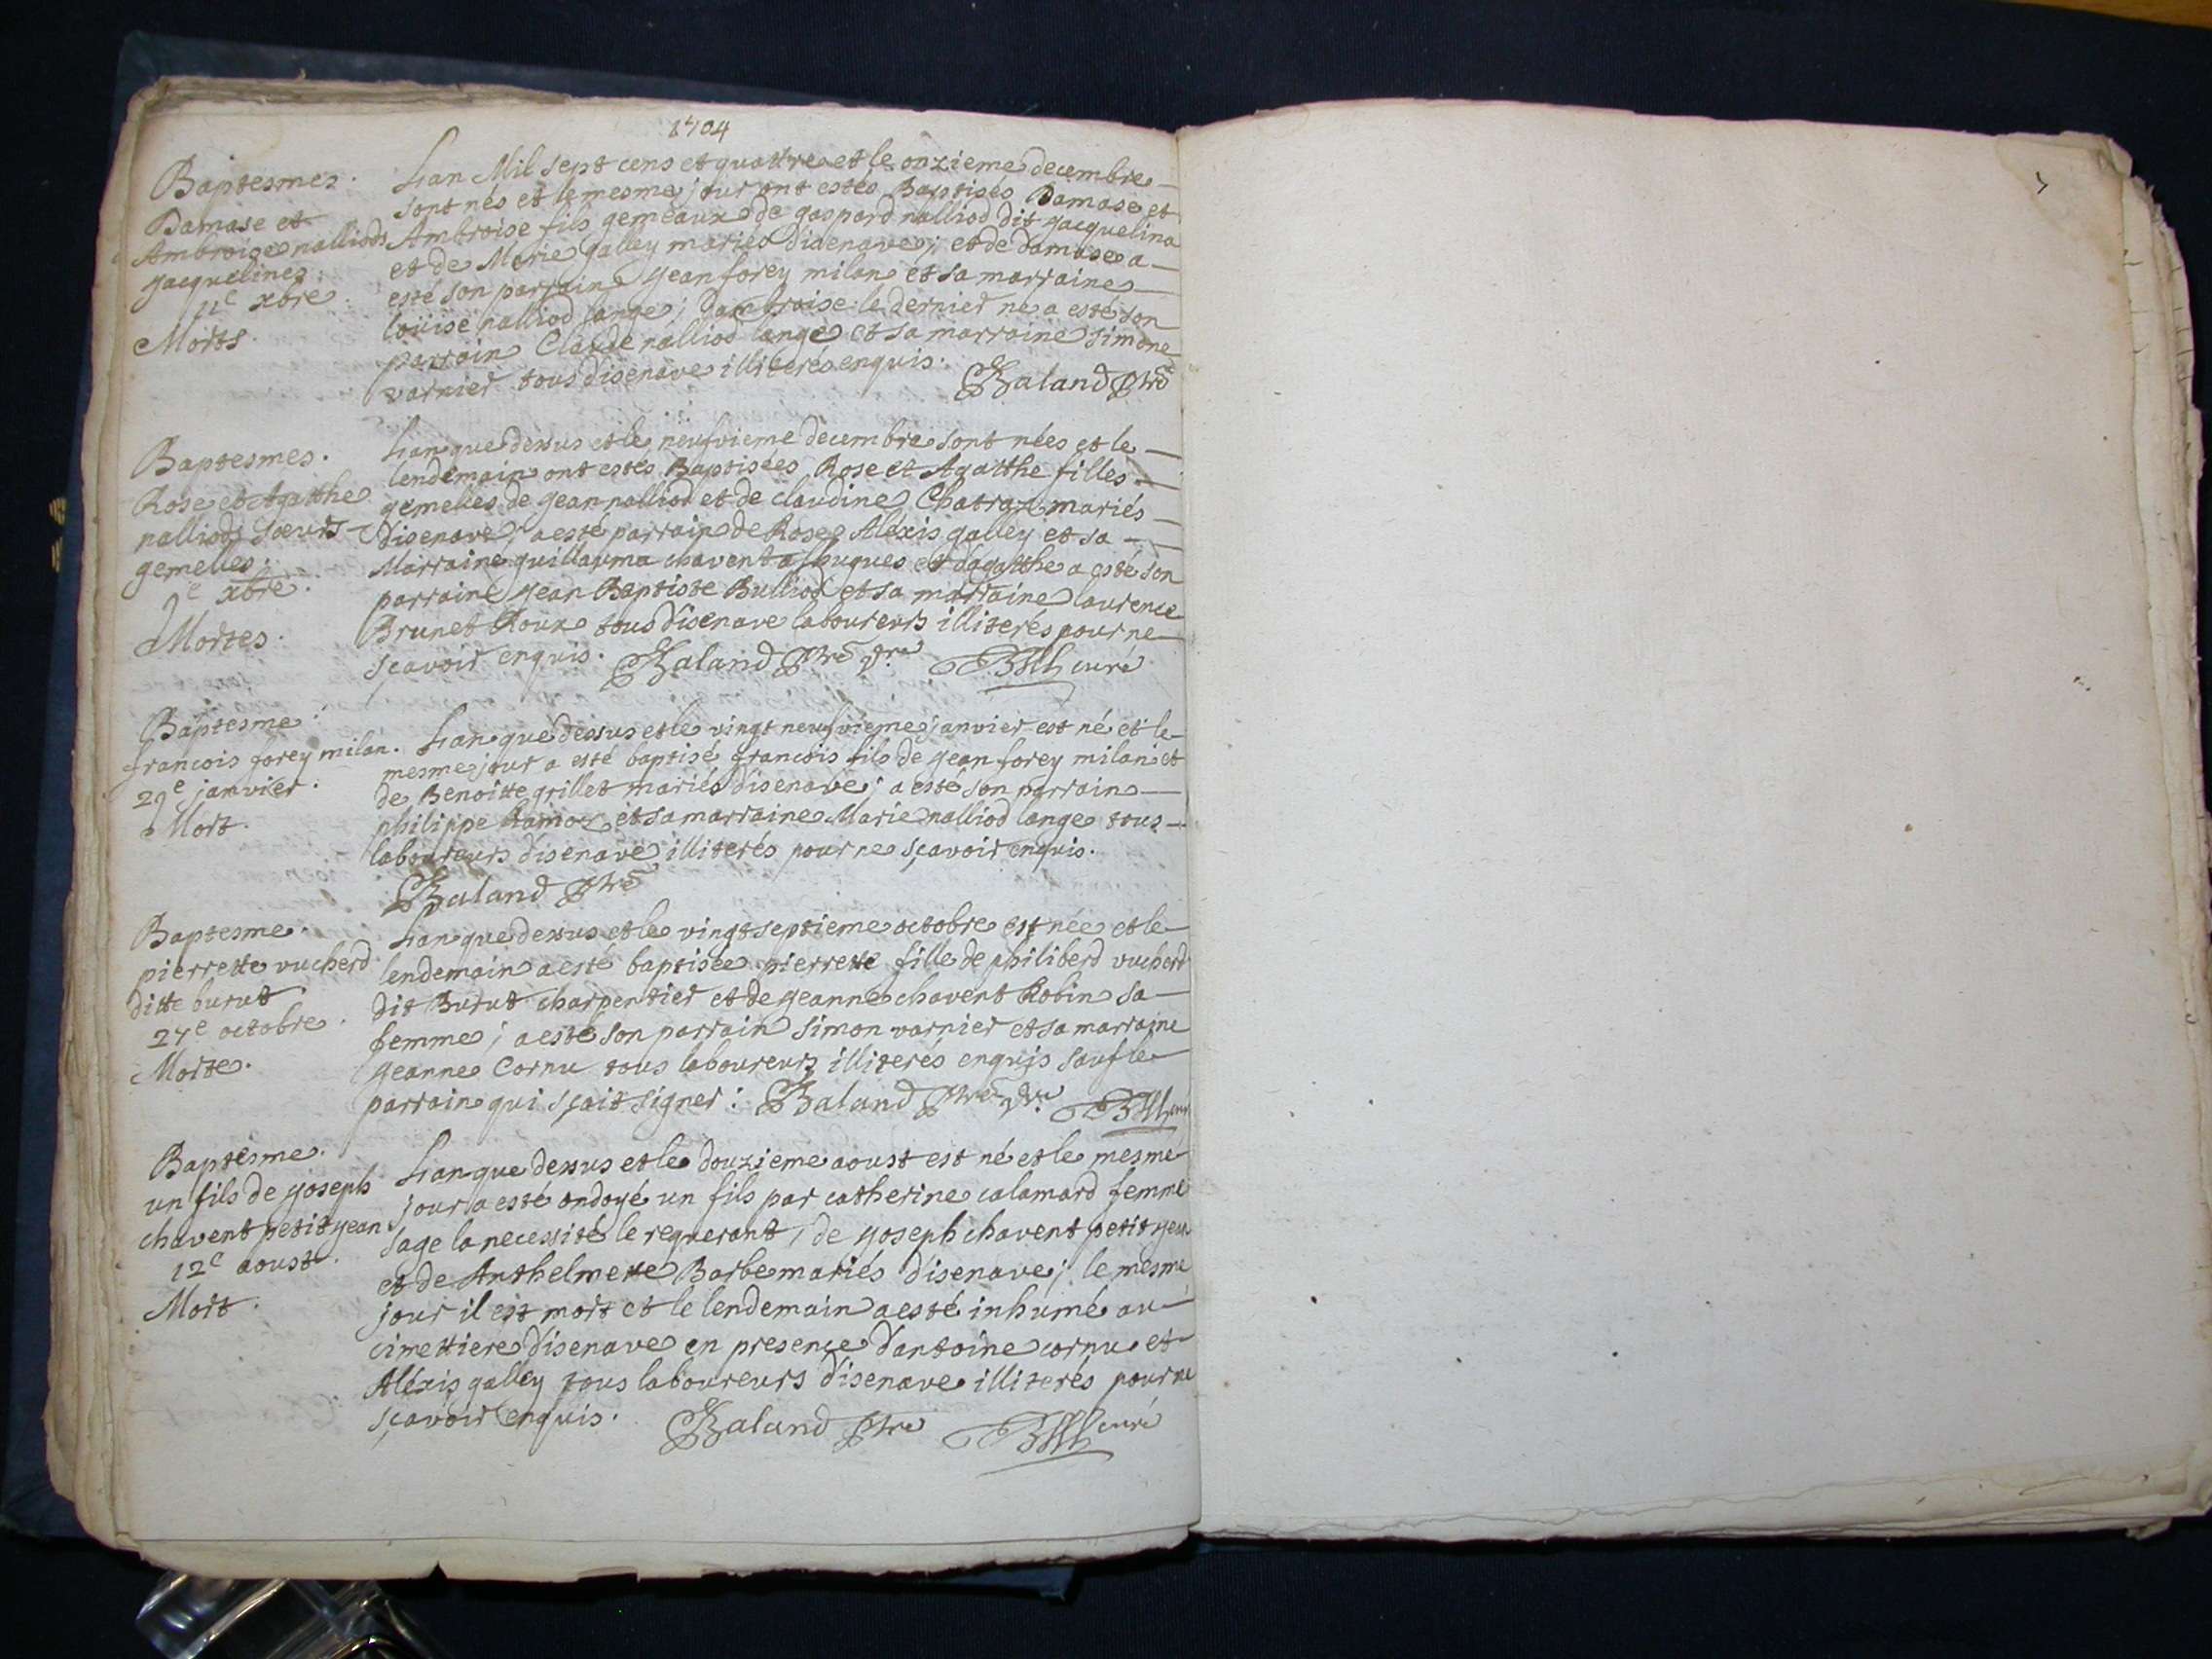 1704
Baptesmes.
Damase et
Ambroise nalliods
Jacquelines.
11e xbre.
Morts.
Lan Mil sept cens et quattre et le onzieme decembre
sont nés et le mesme jour ont estés Baptisés Damase et
Ambroise fils gemeaux de gaspard nalliod dit Jacquelina
et de Marie galley mariés disenave; et de damase a
esté son parrain Jean forey milan et sa marraine
loüise nalliod lange; dambroise le dernier né a esté son
parrain Claude nalliod lange et sa marraine simone
varnier tous disenave illiterés enquis.
Baland ptre
Baptesmes.
Rose et Agatthe
nalliods soeurs
gemelles.
9e xbre.
Mortes.
Lan que dessus et le neufvieme decembre sont nées et le
lendemain ont estés Baptisées Rose et Agatthe filles
gemelles de Jean nalliod et de claudine Chatraz mariés
disenave; a esté parrain de Rose Aléxis galley et sa
Marraine guillauma chavent a hugues et dagatthe a esté son
parrain Jean Baptiste Bulliod et sa marraine laurence
Brunet Roux tous disenave laboureurs illiterés pour ne
sçavoir enquis. Baland ptre vre curé
Baptesme
francois forey milan.
29e janvier.
Mort.
Lan que dessus et le vingt neufvieme janvier est né et le
mesme jour a esté baptisé francois fils de Jean forey milan et
de Benoitte grillet mariés disenave; a esté son parrain
philippe Ramoz et sa marraine Marie nalliod lange tous
laboureurs disenave illiterés pour ne sçavoir enquis.
Baland ptre
Baptesme.
pierrette vucherd
ditte burut.
27e octobre.
Morte.
Lan que dessus et le vingt septieme octobre est née et le
lendemain a esté baptisée pierrette fille de philiberd vucherd
dit Burut charpentier et de Jeanne chavent Robin sa
femme; a esté son parrain simon varnier et sa marraine
Jeanne Cornu tous laboureurs illiterés enquis sauf le
parrain qui sçait signer: Baland ptre vre curé
Baptesme.
un fils de Joseph
chavent petit Jean
12e aoust.
Mort.
Lan que dessus et le douzieme aoust est né et le mesme
jour a esté ondoyé un fils par catherine calamard femme
sage la necessité le requerant, de Joseph chavent petit Jean
et de Anthelmette Barbe mariés disenave; le mesme
jour il est mort et le lendemain a esté inhumé au
cimettiere disenave en presence dantoine cornu et
Aléxis galley tous laboureurs disenave illiterés pour ne
sçavoir enquis. Baland ptre curé